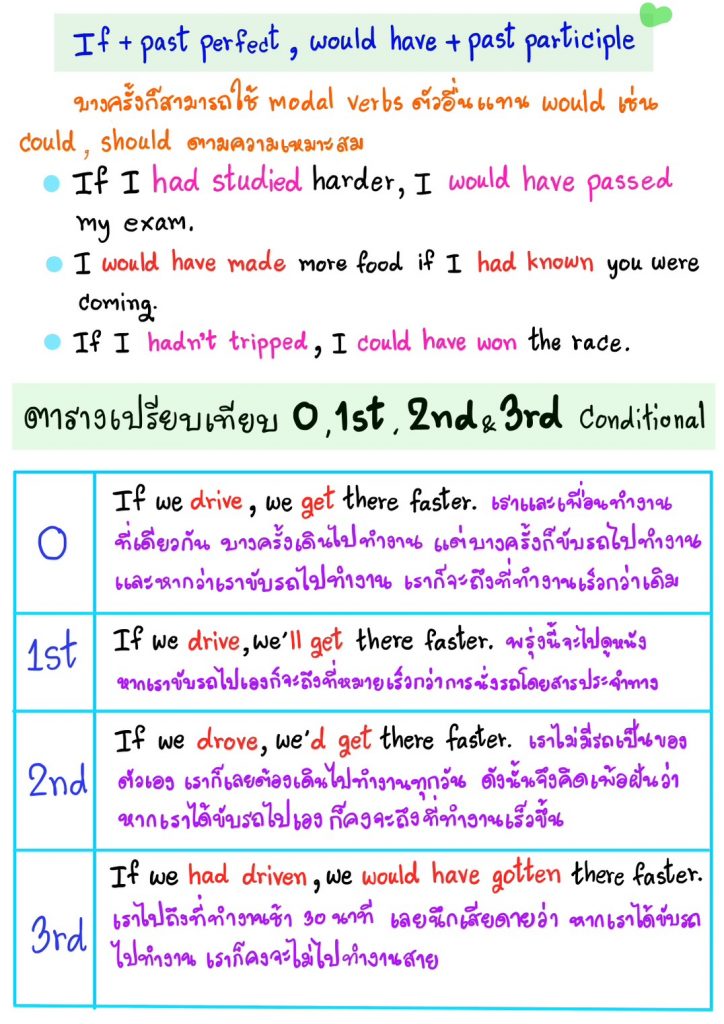 If + past perfect, would have + past participle
บางครั้งก็สามารถใช้ modal verbs ตัวอื่นแทน would เช่น
could, should ตามความเหมาะสม
If I had studied harder, I would have passed
my exam.
I would have made more food if I had known you were
coming.
If I hadn't tripped, I could have won the race.
ตารางเปรียบเทียบ 0, 1st, 2nd & 3rd Conditional
0
If we drive, we get there faster. เราและเพื่อนทำงาน
ที่เดียวกัน บางครั้งเดินไปทำงาน แต่บางครั้งก็ขับรถไปทำงาน
และหากว่าเราขับรถไปทำงาน เราก็จะถึงที่ทำงานเร็วกว่าเดิม
1st
If we drive, we'll get there faster. พรุ่งนี้จะไปดูหนัง
หากเราขับรถไปเองก็จะถึงที่หมายเร็วกว่าการนั่งรถโดยสารประจำทาง
2nd
If we drove, we'd get there faster. เราไม่มีรถเป็นของ
ตัวเอง เราก็เลยต้องเดินไปทำงานทุกวัน ดังนั้นจึงคิดเพ้อฝันว่า
หากเราได้ขับรถไปเอง ก็คงจะถึงที่ทำงานเร็วขึ้น
3rd
If we had driven, we would have gotten there faster.
เราไปถึงที่ทำงานช้า 30 นาที เลยนึกเสียดายว่า หากเราได้ขับรถ
ไปทำงาน เราก็คงจะไม่ไปทำงานสาย